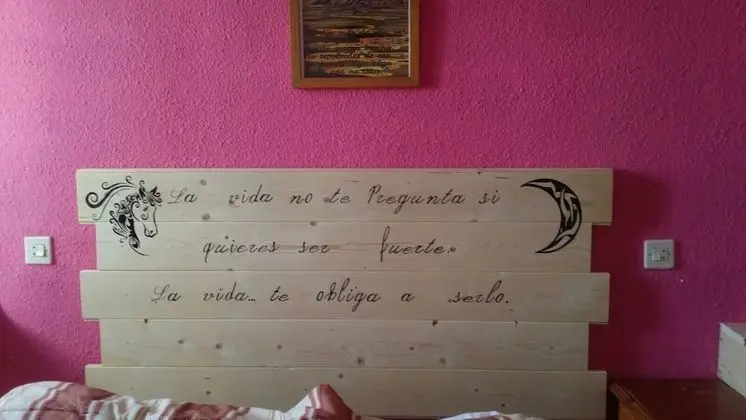 La vida no te Pregunta si
quieres ser fuerte.
La vida... te obliga a serlo.